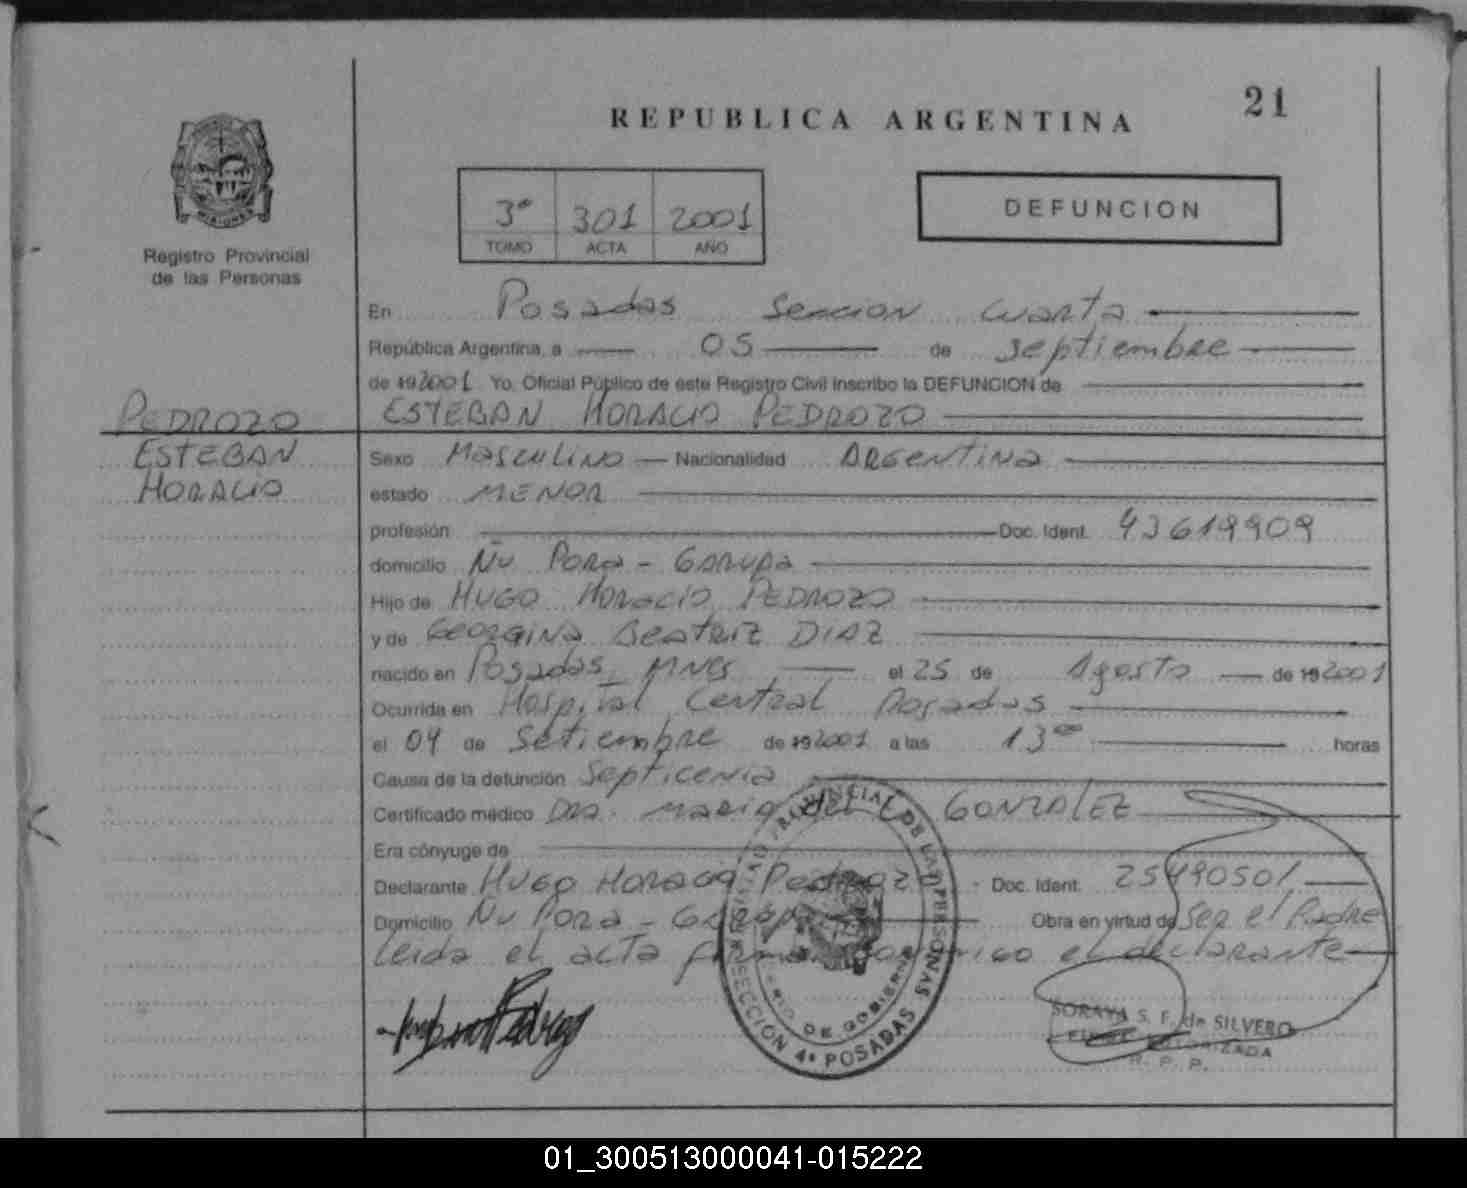 21
REPUBLICA ARGENTINA
MISIONES
Registro Provincial
de las Personas
3° 301 2001
TOMO ACTA AÑO
DEFUNCION
En Posadas Seccion Cuarta
República Argentina, a 05 de septiembre
de 19 2001 Yo, Oficial Público de este Registro Civil inscribo la DEFUNCION de
ESTEBAN HORACIO PEDROZO
PEDROZO
ESTEBAN
HORACIO
Sexo MASCULINO Nacionalidad ARGENTINA
estado MENOR
profesión Doc. Ident. 43619909
domicilio Ñu Pora - Garupa
Hijo de HUGO Horacio PEDROZO
y de GEORGINA Beatriz DIAZ
nacido en Posadas, Mnes el 25 de Agosto de 19 2001
Ocurrida en Hospital Central Posadas
el 04 de Setiembre de 19 2001 a las 13 00 horas
Causa de la defunción Septicemia
Certificado médico Dra. Maria del C GONZALEZ
Era cónyuge de
Declarante Hugo Horacio Pedrozo Doc. Ident. 25490501
Domicilio Ñu Pora - Garupa Obra en virtud de Ser el Padre
Leida el acta firma conmigo el declarante
REGISTRO PROVINCIAL DE LAS PERSONAS
MINISTERIO DE GOBIERNO
SECCION 4ª POSADAS
SORAYA S. F. de SILVERO
FIRMA AUTORIZADA
R. P. P.
01_300513000041-015222